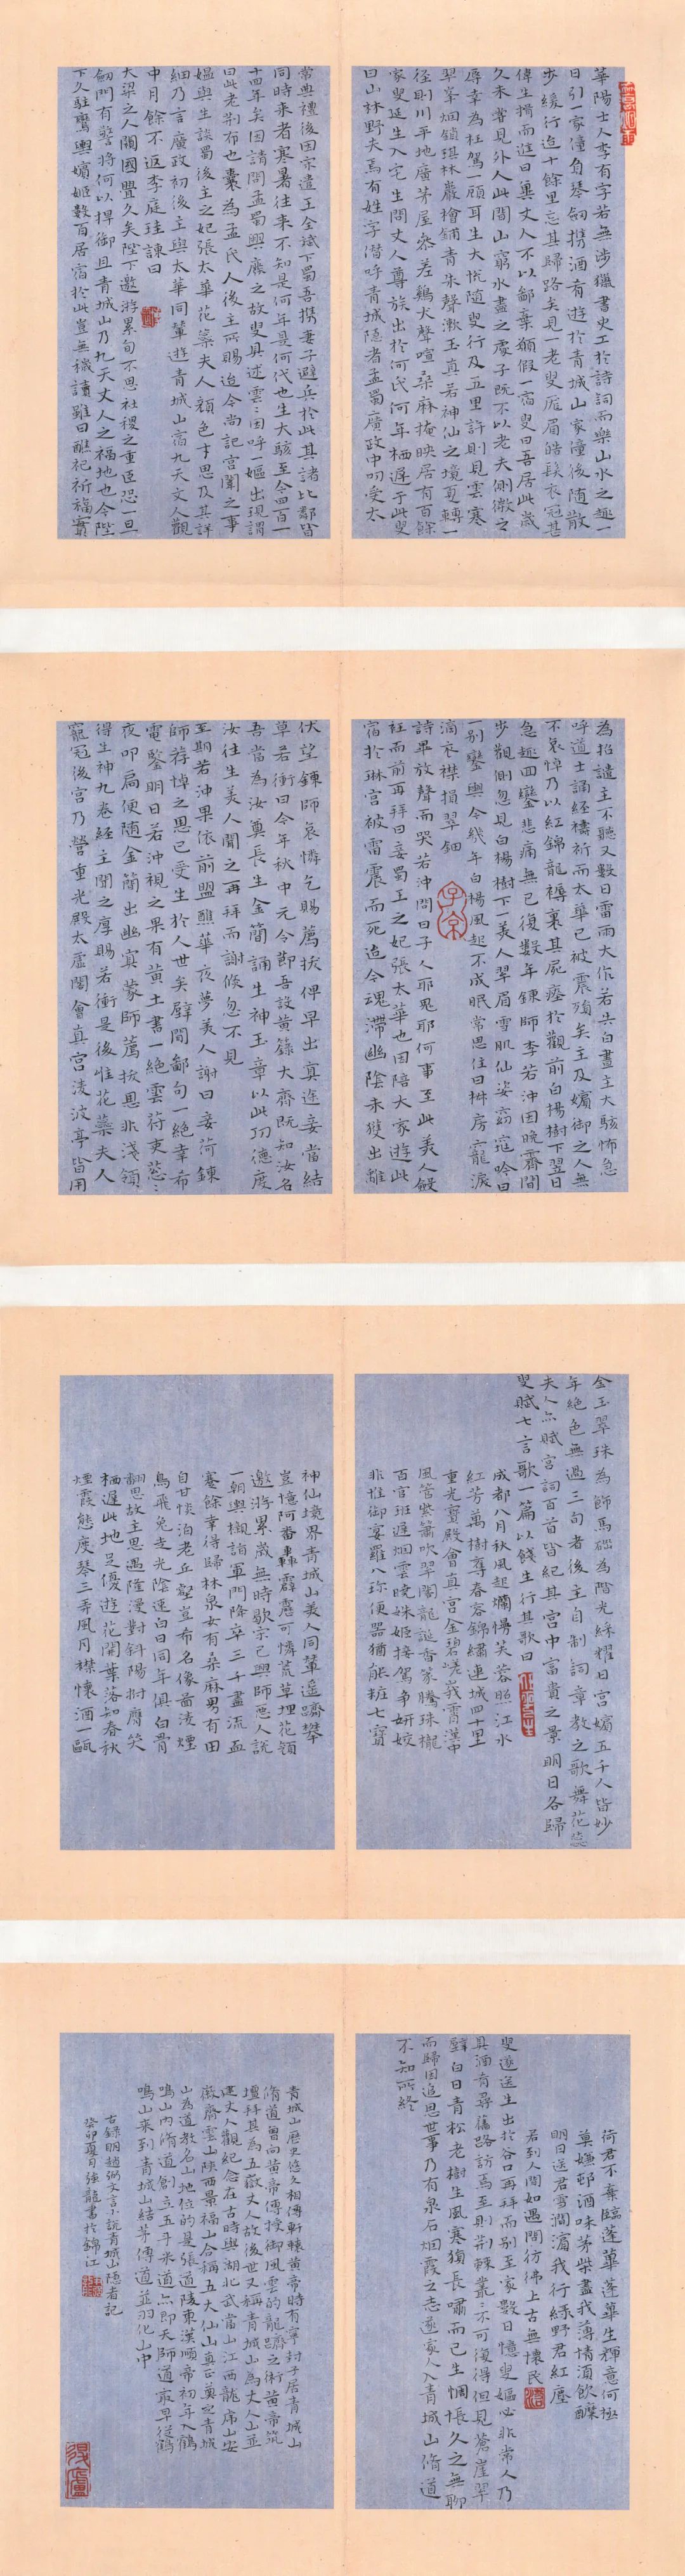 華陽士人李有字若無涉獵書史工於詩詞而樂山水之趣一
日引一家僮負琴劍攜酒肴遊於青城山家僮後隨散
步緩行迨十餘里忘其歸路矣見一老叟厖眉皓髮衣冠甚
偉生揖而進曰萬丈人不以鄙棄願假一宿叟曰吾居此歲
久未嘗見外人此間山窮水盡之處子既不以老夫側微之
辱幸為枉駕一顧耳生大悅隨叟行及五里許則見雲寒
翠峯烟鎖琪林巖檜鋪青泉聲漱玉真若神仙之境更轉一
徑則川平地廣茅屋參差鷄犬聲喧桑麻掩映居有百餘
家叟延生入宅生問丈人尊族出於何氏何年栖遲于此叟
曰山林野夫焉有姓字僭呼青城隱者孟蜀廣政中叨受太
常典禮後因宗遣王全斌下蜀吾攜妻子避兵於此其諸比鄰皆
同時來者寒暑往來不知是何年是何代也生大駭至今四百一
十四年矣因請問孟蜀興廢之故叟具述雲雲因呼一嫗出現謂
曰此老荊布也囊為孟氏人後主所賜迨今尚記宮闈之事
嫗與生談蜀後主之妃張太華花蕊夫人顏色才思及其詳
細乃一言廣政初後主與太華同輦遊青城山高九天丈人觀
中月餘不返李庭珪諫曰
大梁之人關國舋久矣陛下邀游累旬不思社稷之重臣恐一旦
劍門有警將何以捍御且青城山乃九天丈人之福地也令陛
下久駐鷹輿嬪姬數百居宿於此豈無穢瀆雖曰醮祀祈福實
為招譴主不聽又數日雷雨大作若失白晝主大駭怖急
呼道士誦經禱祈而太華已被震殞矣主及嬪御之人無
不哀悼乃以紅錦龍褥裹其屍瘞於觀前白楊樹下翌日
急趣回鑾悲痛無已復數年鍊師李若沖因晚霽閒
步觀側忽見白楊樹下一美人翠眉雪肌仙姿窈窕吟曰
一別鑾輿今幾年白楊風起不成眠常思往日椒房寵淚
滴衣襟損翠鈿
詩畢放聲而哭若沖問曰子人耶鬼耶何事至此美人斂
衽而前再拜曰妾蜀王之妃張太華也因陪大家遊此
宿於琳宮被雷震而死迨今魂滯幽陰未獲出離
伏望鍊師哀憐乞賜薦拔俾早出冥途妾當結
草若衝曰今年秋中元令節吾設黃籙大齋既知汝名
吾當為汝奠長生金簡誦生神玉章以此功德度
汝往生美人聞之再拜而謝倏忽不見
至期若沖果依前盟醮華夜夢美人謝曰妾荷鍊
師荐悼之恩已受生於人世矣壁間鄙句一絕幸希
電鑒明日若沖視之果有黃土書一絕雲符吏蒽蒽
夜叩扃便隨金簡出幽冥蒙師薦拔恩非淺領
得生神九卷經主聞之厚賜若衝是後惟花蘂夫人
寵冠後宮乃營重光殿太虛閣會真宮淩波亭皆用
金玉翠珠為飾馬磁為階光綵耀日宮嬪五千人皆妙
年絕色無過三旬者後主自制詞章教之歌舞花蕊
夫人亦賦宮詞百首皆紀其宮中富貴之景明日各歸
叟賦七言歌一篇以餞生行其歌曰
成都八月秋風起爛慢芙蓉照江水
紅芳萬樹奪春容錦繡連城四十里
重光寶殿會真宮金碧嵯峩霄漢中
風管紫簫吹翠閣龍涎香篆騰珠櫳
百官班遲烟雲曉姝姬接駕爭妍姣
非惟御宴羅八珍便器猶能粧七寶
神仙境界青城山美人同輦遥躋攀
豈憶阿香轟霹靂可憐荒草埋花顏
邀游累歲無時歇宗已興師惡人說
一朝輿櫬詣軍門降卒三千盡流血
蹇餘幸得歸林泉女有桑麻男有田
自甘恬泊老丘壑豈布名像畵淩煙
烏飛兔走光陰速白日同年俱白骨
翻思故主恩遇隆漫對斜陽拊膺哭
栖遲此地足優遊花開葉落知春秋
煙霞態度琴三弄風月襟懷酒一甌
荷君不棄臨蓬蓽蓬蓽生輝意何極
莫嫌邨酒味茅柴盡我薄情酒飲釅
明日送君雪澗濱我行綠野君紅塵
君到人間如過問彷彿上古無懷民
叟遂送生出於谷口再拜而別至家數日憶叟嫗必非常人乃
具酒肴尋舊路訪焉至則荊棘叢叢不可復得但見蒼崖翠
壁白日青松老樹生風寒猿長嘯而已生惆悵久之無聊
而歸因追思世事乃有泉石烟霞之志遂家人入青城山脩道
不知所終
青城山歷史悠久相傳軒轅黃帝時有寧封子居青城山
脩道曾向黃帝傳授御風雲的龍蹻之術黃帝筑
壇拜其為五嶽丈人故後世又稱青城山為丈人山並
建丈人觀紀念在古時與湖北武當山江西龍虎山安
徽齊雲山陝西景福山合稱五大仙山真正奠定青城
山為道教名山地位的是張道陵東漢順帝初年入鶴
鳴山內脩道創立五斗米道亦即天師道最早從鶴
鳴山來到青城山結茅傳道並羽化山中
古錄明趙弼文言小說青城山隱者記
癸卯夏月強龍書於錦江